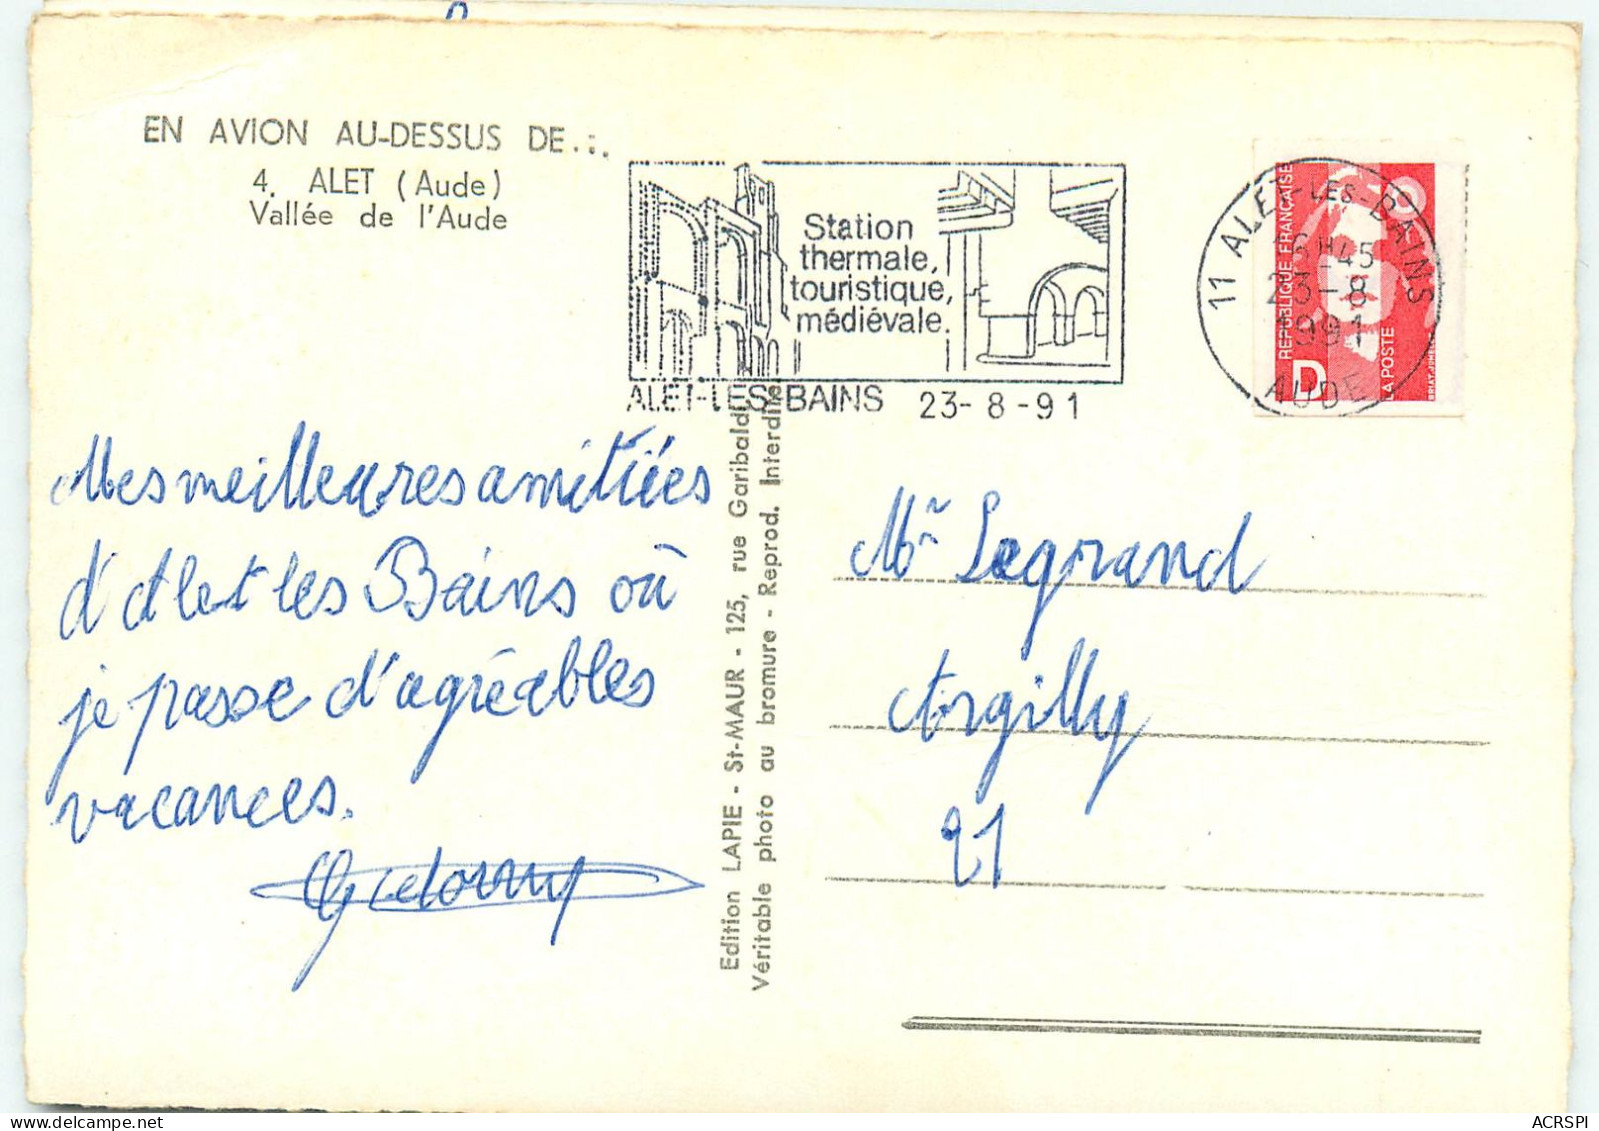 EN AVION AU-DESSUS DE...
4. ALET (Aude)
Vallée de l'Aude
Station
thermale,
touristique,
médiévale.
ALET-LES-BAINS 23-8-91
11 ALET-LES-BAINS
16H45
23-8
1991
AUDE
REPUBLIQUE FRANÇAISE
D
LA POSTE
BRIAT-JUMELET
Mes meilleures amitiées
d'Alet les Bains où
je passe d'agréables
vacances.
Edition LAPIE - St-MAUR - 125, rue Garibaldi
Véritable photo au bromure - Reprod. Interdite
Mr Legrand
Argilly
21
ACRSPI